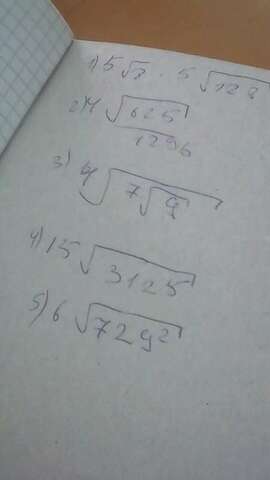 1) 5√8 · 5√128
2) 4√625/1296
3) 4√7√9
4) 15√3125
5) 6√729²